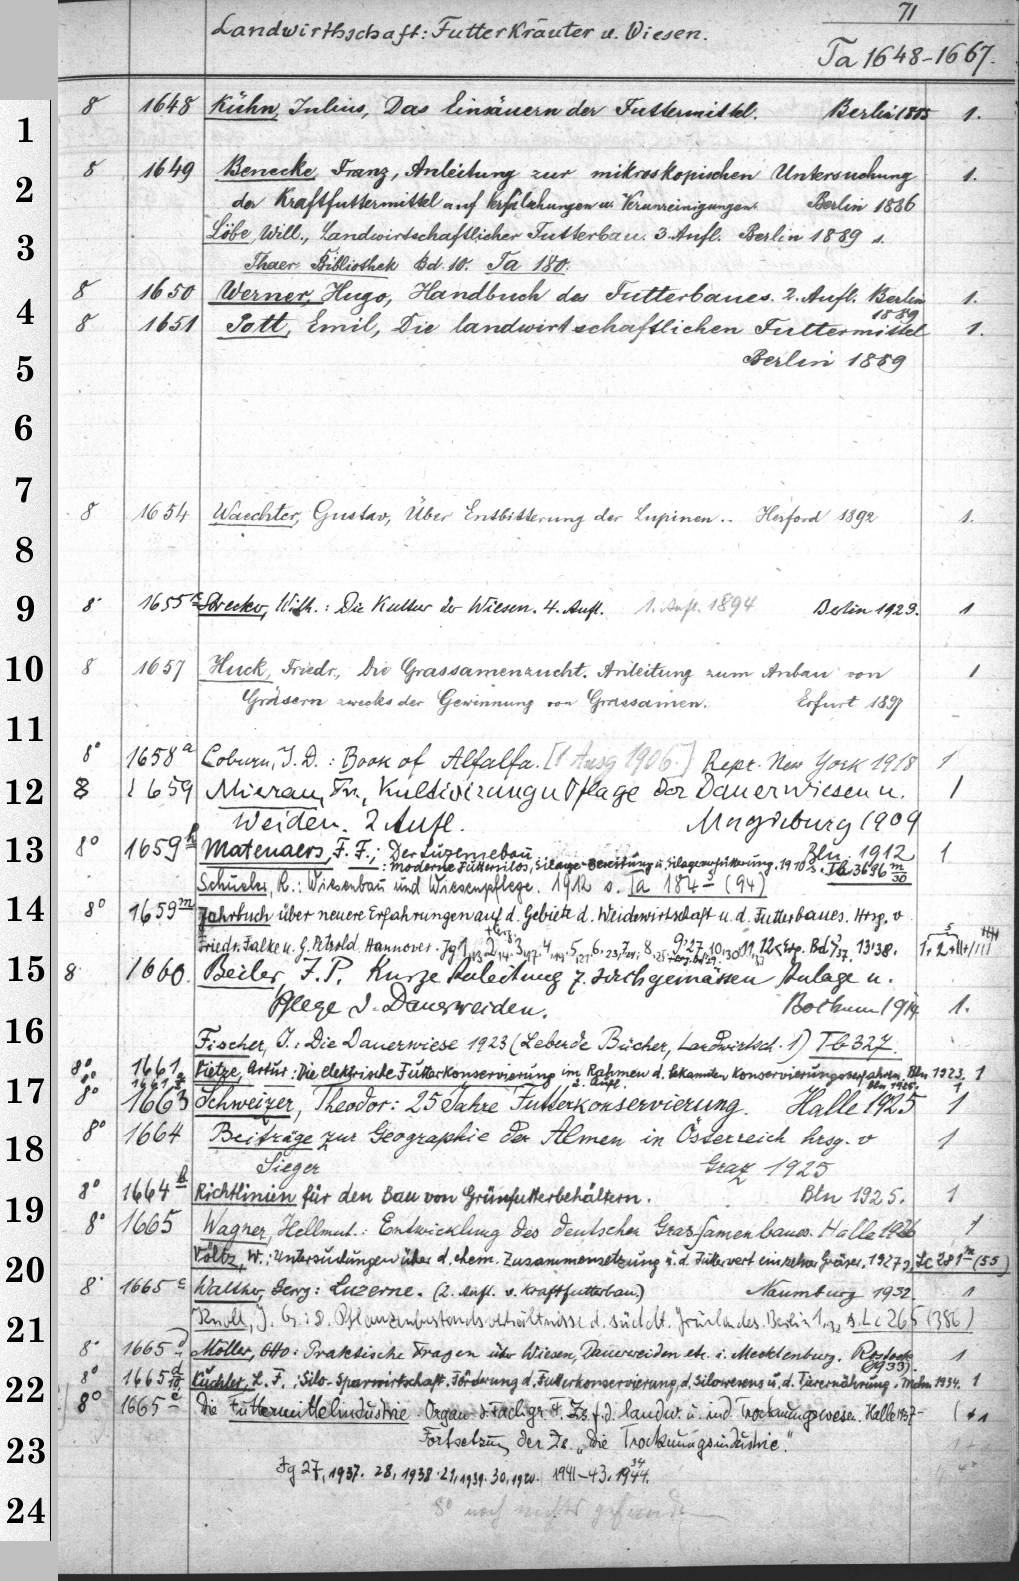 71
Landwirthschaft: Futterkräuter u. Wiesen.
Ta 1648-1667.
1
8 1648 Kühn, Julius, Das Einsäuern der Futtermittel. Berlin 1885 1.
2
8 1649 Benecke, Franz, Anleitung zur mikroskopischen Untersuchung 1.
der Kraftfuttermittel auf Verfälschungen u. Verunreinigungen. Berlin 1886
3
Löbe, Will., Landwirtschaftlicher Futterbau. 3. Aufl. Berlin 1889 s.
Thaer-Bibliothek Bd. 10. Ta 180.
4
8 1650 Werner, Hugo, Handbuch des Futterbaues. 2. Aufl. Berlin 1.
1889
8 1651 Pott, Emil, Die landwirtschaftlichen Futtermittel 1.
5
Berlin 1889
6
7
8 1654 Waechter, Gustav, Über Entbitterung der Lupinen.. Herford 1892 1.
8
9
8 1655 Strecker, Wilh.: Die Kultur der Wiesen. 4. Aufl. 1. Aufl. 1894 Berlin 1923. 1
10
8 1657 Huck, Friedr., Die Grassamenzucht. Anleitung zum Anbau von 1
Gräsern zwecks der Gewinnung von Grassamen. Erfurt 1897
11
8° 1658a Coburn, F. D.: Book of Alfalfa. [1 Ausg 1906.] Repr. New York 1918 1
12
8 1659 Mierau, Fr., Kultivizung u Pflege der Dauerwiesen u. 1
Weiden. 2 Aufl. Magdeburg 1909
13
8° 1659h Matenaers, F. F.: Der Luzernebau Bln. 1912 1
: Moderne Futtersilos, Silage-Bereitung u. Silagenfütterung. 1910 s. Tb 3696 m/30
Schuster, R.: Wiesenbau und Wiesenpflege. 1912 s. Ta 184 s (94)
14
8° 1659m Jahrbuch über neuere Erfahrungen auf d. Gebiete d. Weidewirtschaft u. d. Futterbaues. Hrsg. v
Friedr. Falke u. G. Petzold. Hannover.
15
8 1660. Beiler, F. P. Kurze Anleitung z. sachgemässen Anlage u.
Pflege d. Dauerweiden. Bochum 1914 1.
16
Fischer, J.: Die Dauerwiese 1923 (Lebende Bücher, Landwirtsch. 1) Tb 327
8° 1661 Vietze, Artur: Die elektrische Futterkonservierung im Rahmen d. bekannten Konservierungsverfahren. Bln 1923. 1
2. Aufl. Bln 1925. 1
17
8° 1663 Schweizer, Theodor: 25 Jahre Futterkonservierung. Halle 1925 1
18
8° 1664 Beiträge zur Geographie der Almen in Österreich hrsg. v 1
Sieger Graz 1925
19
8° 1664h Richtlinien für den Bau von Grünfutterbehältern. Bln 1925. 1
8° 1665 Wagner, Hellmut.: Entwicklung des deutschen Grassamenbaues. Halle 1926 1
20
Völtz, W.: Untersuchungen über d. chem. Zusammensetzung u. d. Futterwert einzelner Gräser. 1927 s. Lc 281m (55)
8° 1665c Walther, Georg: Luzerne. (2. Aufl. v. Kraftfutterbau.) Naumburg 1932. 1
21
Knoll, J. G.: D. Pflanzenbestandsverhältnisse d. süddt. Grünlandes. Berlin 1932 s. Lc 265 (386)
8° 1665d Möller, Otto: Praktische Fragen über Wiesen, Dauerweiden etc. i. Mecklenburg. Rostock 1
(1933).
22
8° 1665 Küchler, L. F.: Silo-Sparwirtschaft. Förderung d. Futterkonservierung, d. Silowesens u. d. Tierernährung. Mchn. 1934. 1
8° 1665e Die Futtermittelindustrie. Organ d. Fachgr. Zs f. d. landw. u. ind. Trocknungswesen. Halle 1937-
23
Fortsetzung der Zs. „Die Trocknungsindustrie."
Jg 27, 1937. 28, 1938. 29, 1939. 30, 1940. 1941-43. 1944.
24
8° noch nichts gefunden